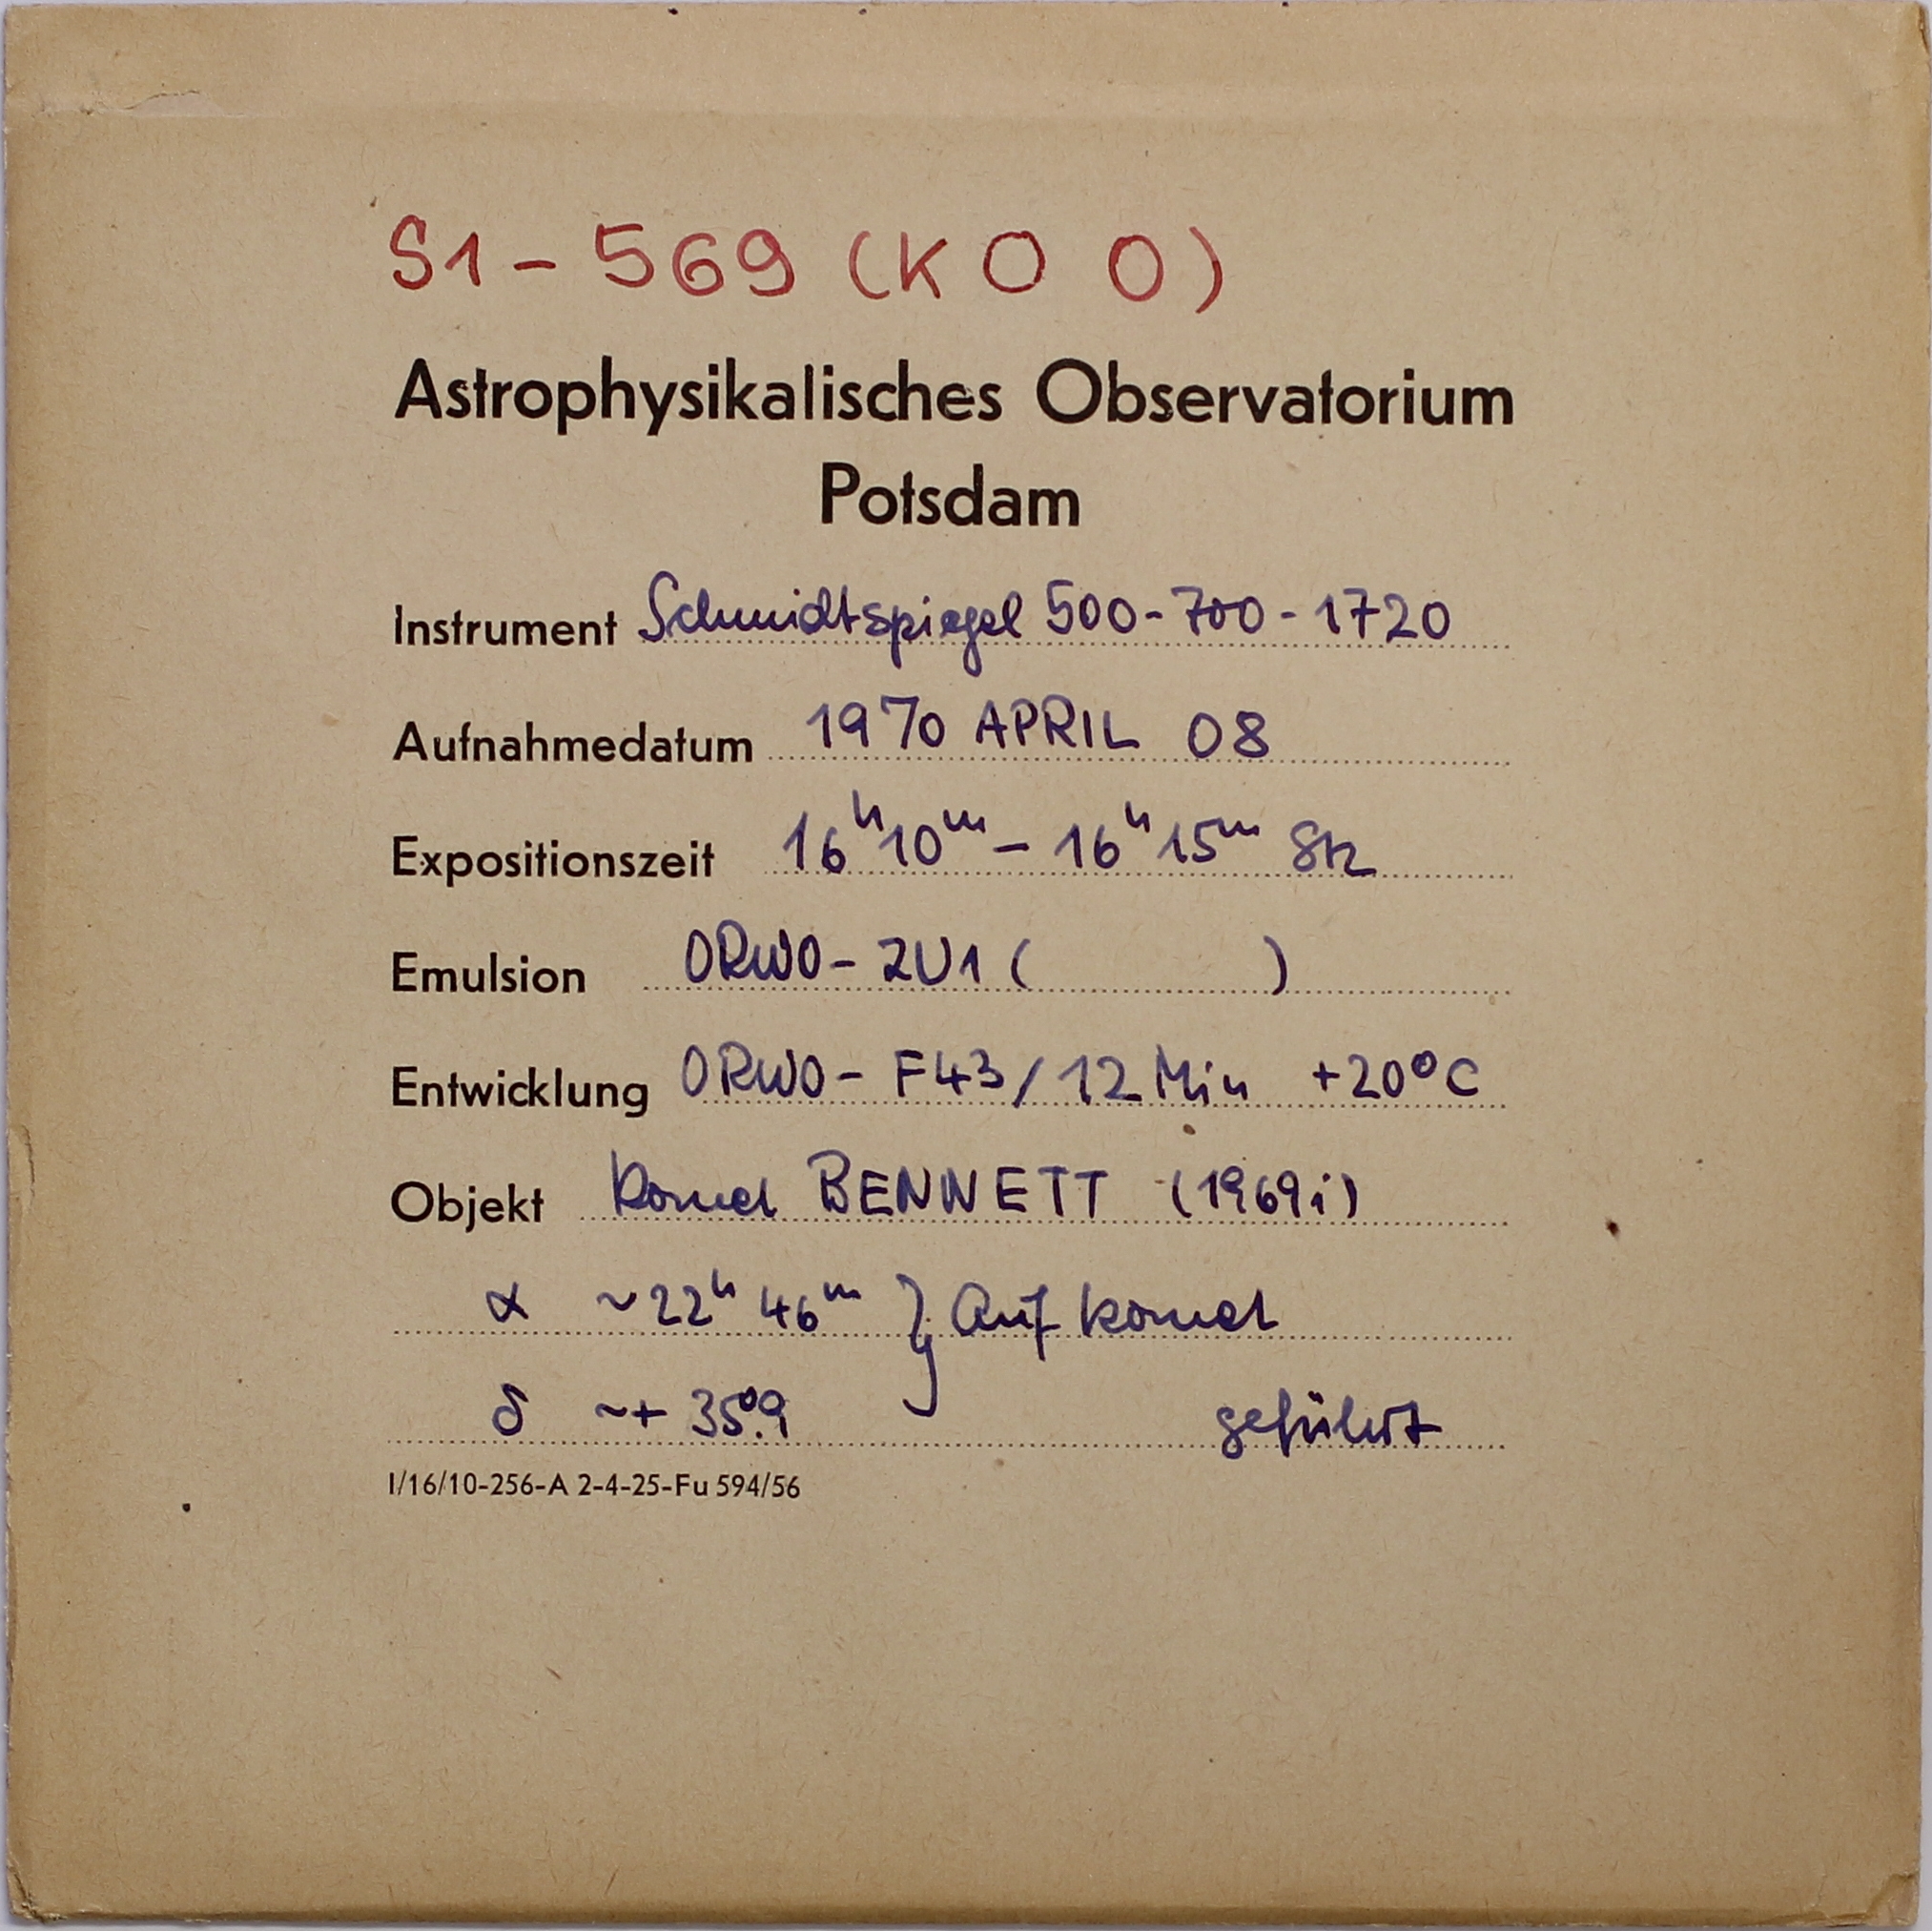 S1-569 (K O O)
Astrophysikalisches Observatorium
Potsdam
Instrument Schmidtspiegel 500-700-1720
Aufnahmedatum 1970 APRIL 08
Expositionszeit 16ʰ10ᵐ - 16ʰ15ᵐ Stz
Emulsion ORWO- ZU1 ( )
Entwicklung ORWO- F43/12 Min +20°C
Objekt Komet BENNETT (1969i)
α ~22ʰ 46ᵐ } Auf Komet
δ ~+ 35°.9 geführt
I/16/10-256-A 2-4-25-Fu 594/56